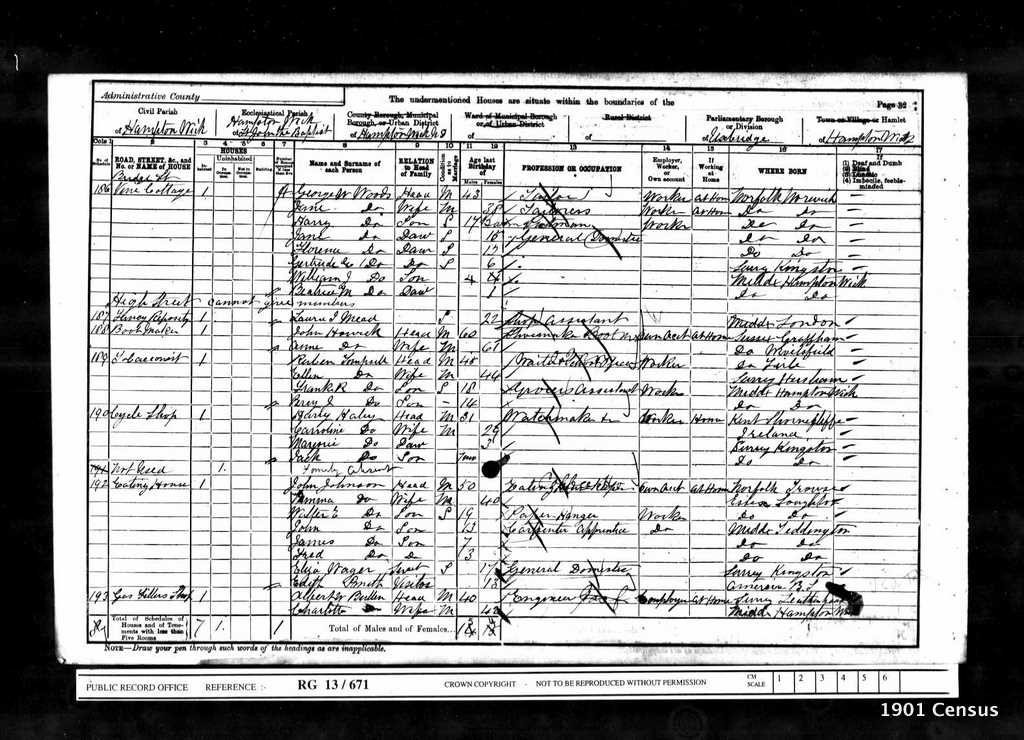 Administrative County
The undermentioned Houses are situate within the boundaries of the
Page 32
Civil Parish
of Hampton Wick
Ecclesiastical Parish
Hampton Wick
of St John the Baptist
County Borough, Municipal Borough, or Urban District
of Hampton Wick U D
Ward of Municipal Borough or of Urban District
of
Rural District
of
Parliamentary Borough or Division
of Uxbridge
Town or Village or Hamlet
of Hampton Wick
Cols 1 2 3 4 5 6 7 8 9 10 11 12 13 14 15 16 17
No. of Schedule
ROAD, STREET, &c., and No. or NAME of HOUSE
HOUSES
Inhabited
Uninhabited
In Occupation
Not in Occupation
Building
Name and Surname of each Person
RELATION to Head of Family
Condition as to Marriage
Age last Birthday of
Males Females
PROFESSION OR OCCUPATION
Employer, Worker, or Own account
If Working at Home
WHERE BORN
If
(1) Deaf and Dumb
(2) Blind
(3) Lunatic
(4) Imbecile, feeble-minded
Bridge St
186 Vine Cottage 1 George W Woods Head M 43 Tailor Worker At Home Norfolk Norwich
Jane Do Wife M 38 Tailoress Worker At Home Do Do
Harry Do Son S 17 Worker Do Do
Jane Do Daw S 18 General Domestic Do Do
Florence Do Daw S 12 Do Do
Gertrude E Do Do S 6 Surry Kingston
William J Do Son 4 Middx Hampton Wick
Beatrice M Do Daw 1 Do Do
High Street - cannot give numbers
187 Fancy Reposity 1 Laura I Mead S 22 Shop Assistant Middx London
188 Bootmaker 1 John Howick Head M 60 Shoemaker Boot Own Acct At Home Sussex Graffham
Anne Do Wife M 61 Do
189 Tobacconist 1 Reuben Head M 48 Worker Do
Ellen Do Wife M 44 Surrey Hersham
Frank R Do Son S 18 Grocers Assistant Worker Middx Hampton Wick
Percy J Do Son - 14 Do Do
190 Cycle Shop 1 Harly Haley Head M 31 Watchmaker Worker Home Kent
Carroline Do Wife M 29 Ireland
Marjorie Do Daw 3 Surrey Kingston
Jack Do Son Do Do
191 Not Used 1 Family absent
192 Eating House 1 John Johnson Head M 50 Eating House Keeper Own Acct At Home Norfolk Trowse
Emma Do Wife M 40 Essex Loughton
Walter E Do Son S 19 Paper Hanger Worker Do Do
John Do Son 13 Carpenter Apprentice Do Middx Teddington
James Do Son 7 Do Do
Fred Do Do 3 Do Do
Eliza Wager Servt S 17 General Domestic Surrey Kingston
Edith Smith Visitor 13 America
193 Gas Fitters Shop 1 Albert W Bullen Head M 40 Engineer Employer At Home Surry
Charlotte Do Wife M 42 Middx Hampton W
Total of Schedules of Houses and of Tenements with less than Five Rooms 7 1 1
Total of Males and of Females
NOTE—Draw your pen through such words of the headings as are inapplicable.
PUBLIC RECORD OFFICE REFERENCE :- RG 13/671 CROWN COPYRIGHT - NOT TO BE REPRODUCED WITHOUT PERMISSION CM SCALE 1 2 3 4 5 6
1901 Census